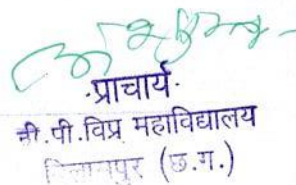 प्राचार्य
बी.पी.विप्र महाविद्यालय
बिलासपुर (छ.ग.)